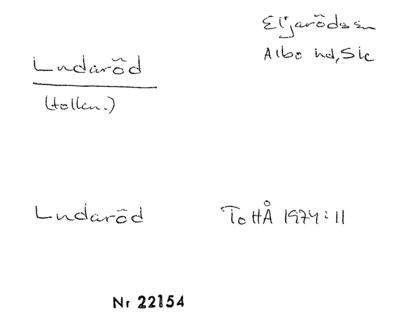 Eljaröds sn
Albo hd, Sk
Lndaröd
(tolkn.)
Lndaröd ToHÅ 1974:11
Nr 22154